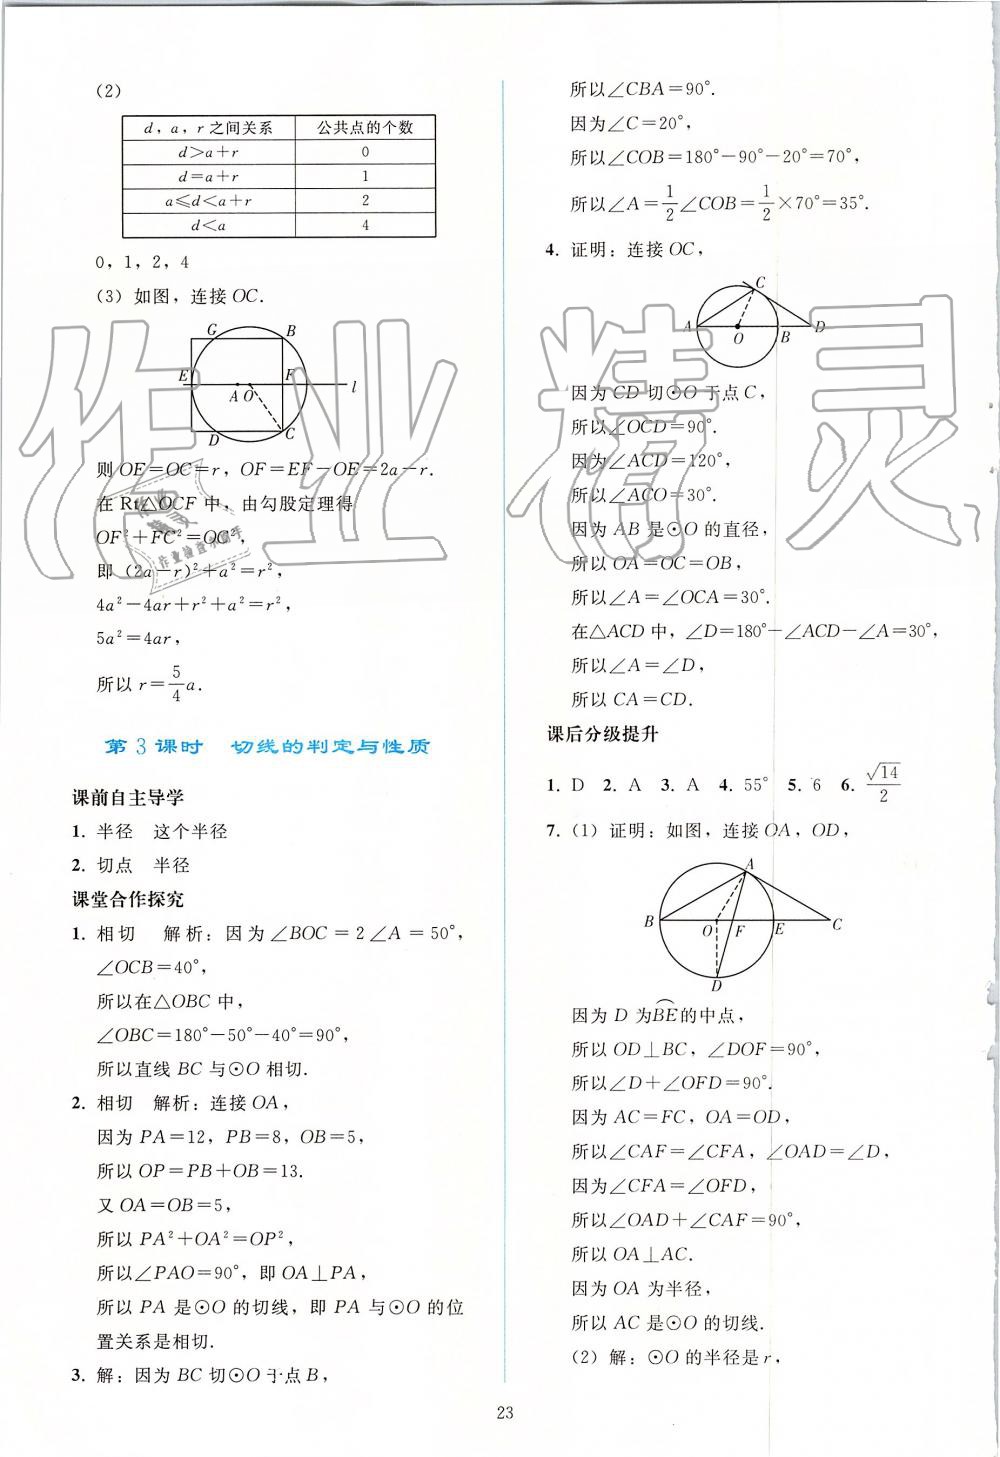 (2)
d，a，r 之间关系 公共点的个数
d＞a＋r 0
d＝a＋r 1
a≤d＜a＋r 2
d＜a 4
0，1，2，4
(3) 如图，连接 OC.
G B
E A O F l
D C
则 OE＝OC＝r，OF＝EF－OE＝2a－r.
在 Rt△OCF 中，由勾股定理得
OF²＋FC²＝OC²，
即 (2a－r)²＋a²＝r²，
4a²－4ar＋r²＋a²＝r²，
5a²＝4ar，
所以 r＝5/4 a.
第 3 课时 切线的判定与性质
课前自主导学
1. 半径 这个半径
2. 切点 半径
课堂合作探究
1. 相切 解析：因为∠BOC＝2∠A＝50°，
∠OCB＝40°，
所以在△OBC 中，
∠OBC＝180°－50°－40°＝90°，
所以直线 BC 与⊙O 相切.
2. 相切 解析：连接 OA，
因为 PA＝12，PB＝8，OB＝5，
所以 OP＝PB＋OB＝13.
又 OA＝OB＝5，
所以 PA²＋OA²＝OP²，
所以∠PAO＝90°，即 OA⊥PA，
所以 PA 是⊙O 的切线，即 PA 与⊙O 的位
置关系是相切.
3. 解：因为 BC 切⊙O 于点 B，
所以∠CBA＝90°.
因为∠C＝20°，
所以∠COB＝180°－90°－20°＝70°，
所以∠A＝1/2∠COB＝1/2×70°＝35°.
4. 证明：连接 OC，
C
A O B D
因为 CD 切⊙O 于点 C，
所以∠OCD＝90°.
因为∠ACD＝120°，
所以∠ACO＝30°.
因为 AB 是⊙O 的直径，
所以 OA＝OC＝OB，
所以∠A＝∠OCA＝30°.
在△ACD 中，∠D＝180°－∠ACD－∠A＝30°，
所以∠A＝∠D，
所以 CA＝CD.
课后分级提升
1. D 2. A 3. A 4. 55° 5. 6 6. √14/2
7. (1) 证明：如图，连接 OA，OD，
A
B O F E C
D
因为 D 为B͡E的中点，
所以 OD⊥BC，∠DOF＝90°，
所以∠D＋∠OFD＝90°.
因为 AC＝FC，OA＝OD，
所以∠CAF＝∠CFA，∠OAD＝∠D，
因为∠CFA＝∠OFD，
所以∠OAD＋∠CAF＝90°，
所以 OA⊥AC.
因为 OA 为半径，
所以 AC 是⊙O 的切线.
(2) 解：⊙O 的半径是 r，
23
作业精灵